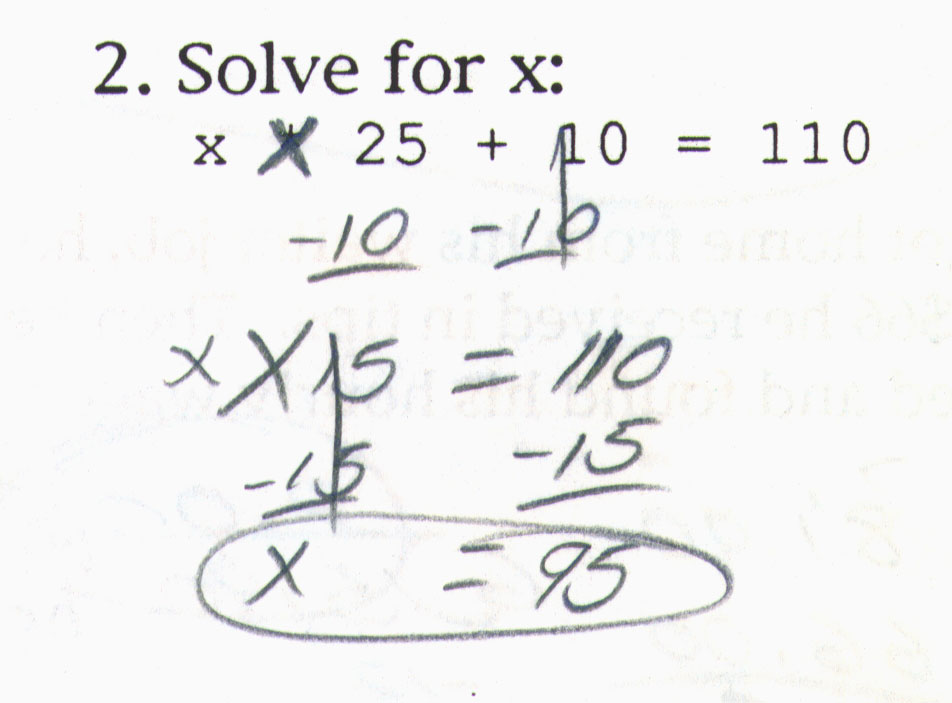 2. Solve for x:
x X 25 + 10 = 110
-10 -10
x X 15 = 110
-15 -15
x = 95